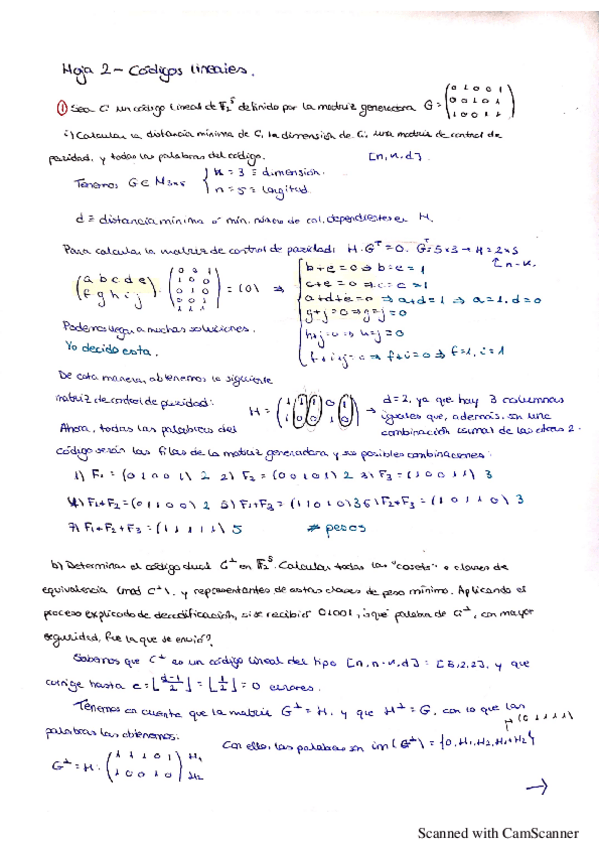 Hoja 2 - Códigos lineales.
① Sea C un código lineal de F₂⁵ definido por la matriz generadora G = (0 1 0 0 1 / 0 0 1 0 1 / 1 0 0 1 1)
i) Calcular la distancia mínima de C, la dimensión de C, una matriz de control de
paridad, y todas las palabras del código. [n, k, d]
Tenemos G ∈ M₃ₓ₅ { k = 3 ≡ dimensión.
n = 5 ≡ longitud.
d ≡ distancia mínima o mín. número de col. dependientes en H.
Para calcular la matriz de control de paridad: H·Gᵀ = 0. Gᵀ: 5x3 → H = 2x5
n-k.
(a b c d e / f g h i j) · (0 0 1 / 1 0 0 / 0 1 0 / 0 0 1 / 1 1 1) = (0) ⇒
b+e = 0 ⇒ b = e = 1
c+e = 0 ⇒ c = e = 1
a+d+e = 0 ⇒ a+d = 1 ⇒ a = 1, d = 0
g+j = 0 ⇒ g = j = 0
h+j = 0 ⇒ h = j = 0
f+i+j = 0 ⇒ f+i = 0 ⇒ f = 1, i = 1
Podemos llegar a muchas soluciones.
Yo decido esta.
De esta manera, obtenemos la siguiente
matriz de control de paridad: H = (1 1 1 0 1 / 1 0 0 1 0) → d = 2, ya que hay 3 columnas
iguales que, además, son una
combinación lineal de las otras 2.
Ahora, todas las palabras del
código serán las filas de la matriz generadora y sus posibles combinaciones:
1) F₁ = (0 1 0 0 1) 2 2) F₂ = (0 0 1 0 1) 2 3) F₃ = (1 0 0 1 1) 3
4) F₁+F₂ = (0 1 1 0 0) 2 5) F₁+F₃ = (1 1 0 1 0) 3 6) F₂+F₃ = (1 0 1 1 0) 3
7) F₁+F₂+F₃ = (1 1 1 1 1) 5 # pesos
b) Determinar el código dual C⊥ en F₂⁵. Calcular todas las "cosets" o clases de
equivalencia (mod C⊥), y representantes de estas clases de peso mínimo. Aplicando el
proceso explicado de decodificación, si se recibió 01001, ¿qué palabra de C⊥, con mayor
seguridad, fue la que se envió?
Sabemos que C⊥ es un código lineal del tipo [n, n-k, d] = [5, 2, 2], y que
corrige hasta e = ⌊(d-1)/2⌋ = ⌊1/2⌋ = 0 errores.
Tenemos en cuenta que la matriz G⊥ = H, y que H⊥ = G, con lo que las
palabras las obtenemos: (0 1 1 1 1)
Con ello, las palabras son im(G⊥) = {0, H₁, H₂, H₁+H₂}
G⊥ = H = (1 1 1 0 1 / 1 0 0 1 0) H₁ H₂
→
Scanned with CamScanner